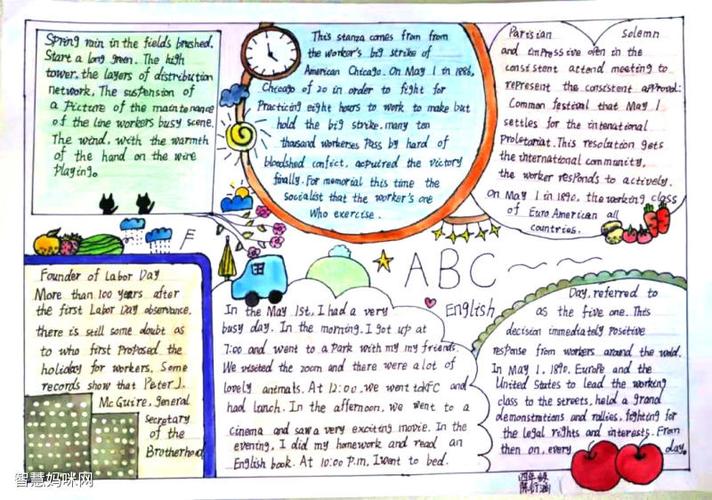 Spring rain in the fields brushed.
Start a long green. The high
tower, the layers of distribution
network. The suspension of
a Picture of the maintenance
of the line workers busy scene.
The wind, with the warmth
of the hand on the wire
Playing。
This stanza comes from from
the worker's big strike of
American Chicago. On May 1 in 1886,
Chicago of 20 in order to fight for
Practicing eight hours to work to make but
hold the big strike, many ten
thousand workerses Pass by hard of
bloodshed confict, acpuired the victory
finally. For memorial this time the
Socialist that the worker's one
Who exercise.
Parisian Solemn
and impressive open in the
consistent attend meeting to
represent the consistent approval:
Common festival that May 1
settles for the intenational
Proletariat. This resolution gets
the international community,
the worker responds to actively.
On May 1 in 1890, the working class
of Euro American all
countries.
Founder of Labor Day
More than 100 years after
the first Labor Day observance,
there is still some doubt as
to who first Proposed the
holiday for workers. Some
records show that Peter J.
McGuire, general
secretary
of the
Brotherhood
ABC
English
In the May 1st, I had a very
busy day. In the morning, I got up at
7:00 and went to a Park with my my friends,
We visited the zoom and there were a lot of
lovely animals. At 12:00, we went to KFC and
had lunch. In the afternoon, we went to a
cinema and saw a very exciting movie. In the
evening, I did my homework and read an
English book. At 10:00 P.m, I went to bed.
Day, referred to
as the five one. This
decision immediately Positive
response from workers around the world.
In May 1, 1890, Europe and the
United States to lead the working
class to the streets, held a grand
demonstrations and rallies, fighting for
the legal rights and interests. From
then on, every day。
智慧妈咪网